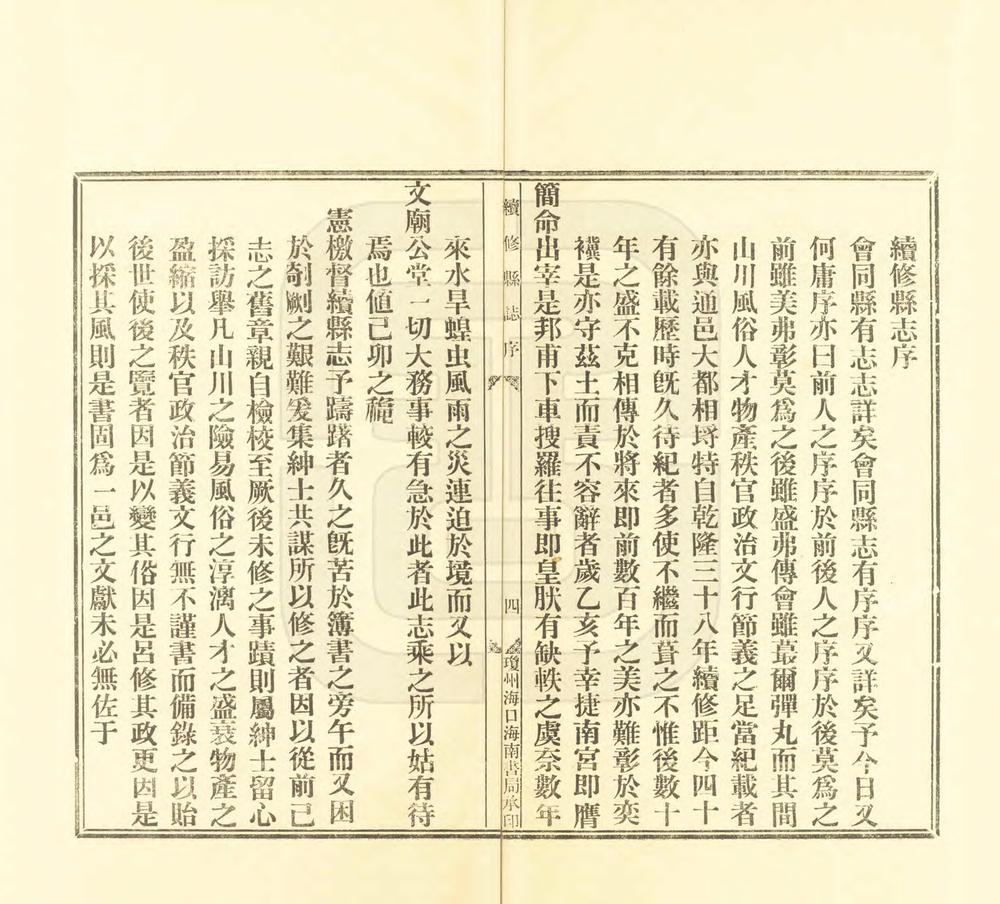 續修縣志序
會同縣有志志詳矣會同縣志有序序又詳矣予今日又
何庸序亦曰前人之序序於前後人之序序於後莫為之
前雖美弗彰莫為之後雖盛弗傳會雖蕞爾彈丸而其間
山川風俗人才物產秩官政治文行節義之足當紀載者
亦與通邑大都相埒特自乾隆三十八年續修距今四十
有餘載歷時旣久待紀者多使不繼而葺之不惟後數十
年之盛不克相傳於將來即前數百年之美亦難彰於奕
禩是亦守茲土而責不容辭者歲乙亥予幸捷南宮即膺
簡命出宰是邦甫下車搜羅往事即皇肰有缺軼之虞奈數年
續修縣誌序
四
瓊州海口海南書局承印
來水旱蝗虫風雨之災連迫於境而又以
文廟公堂一切大務事較有急於此者此志乘之所以姑有待
焉也値己卯之
憲檄督續縣志予躊躇者久之旣苦於簿書之旁午而又困
於剞劂之艱難爰集紳士共謀所以修之者因以從前已
志之舊章親自檢校至厥後未修之事蹟則屬紳士留心
採訪舉凡山川之險易風俗之淳漓人才之盛衰物產之
盈縮以及秩官政治節義文行無不謹書而備錄之以貽
後世使後之覽者因是以變其俗因是呂修其政更因是
以採其風則是書固爲一邑之文獻未必無佐于